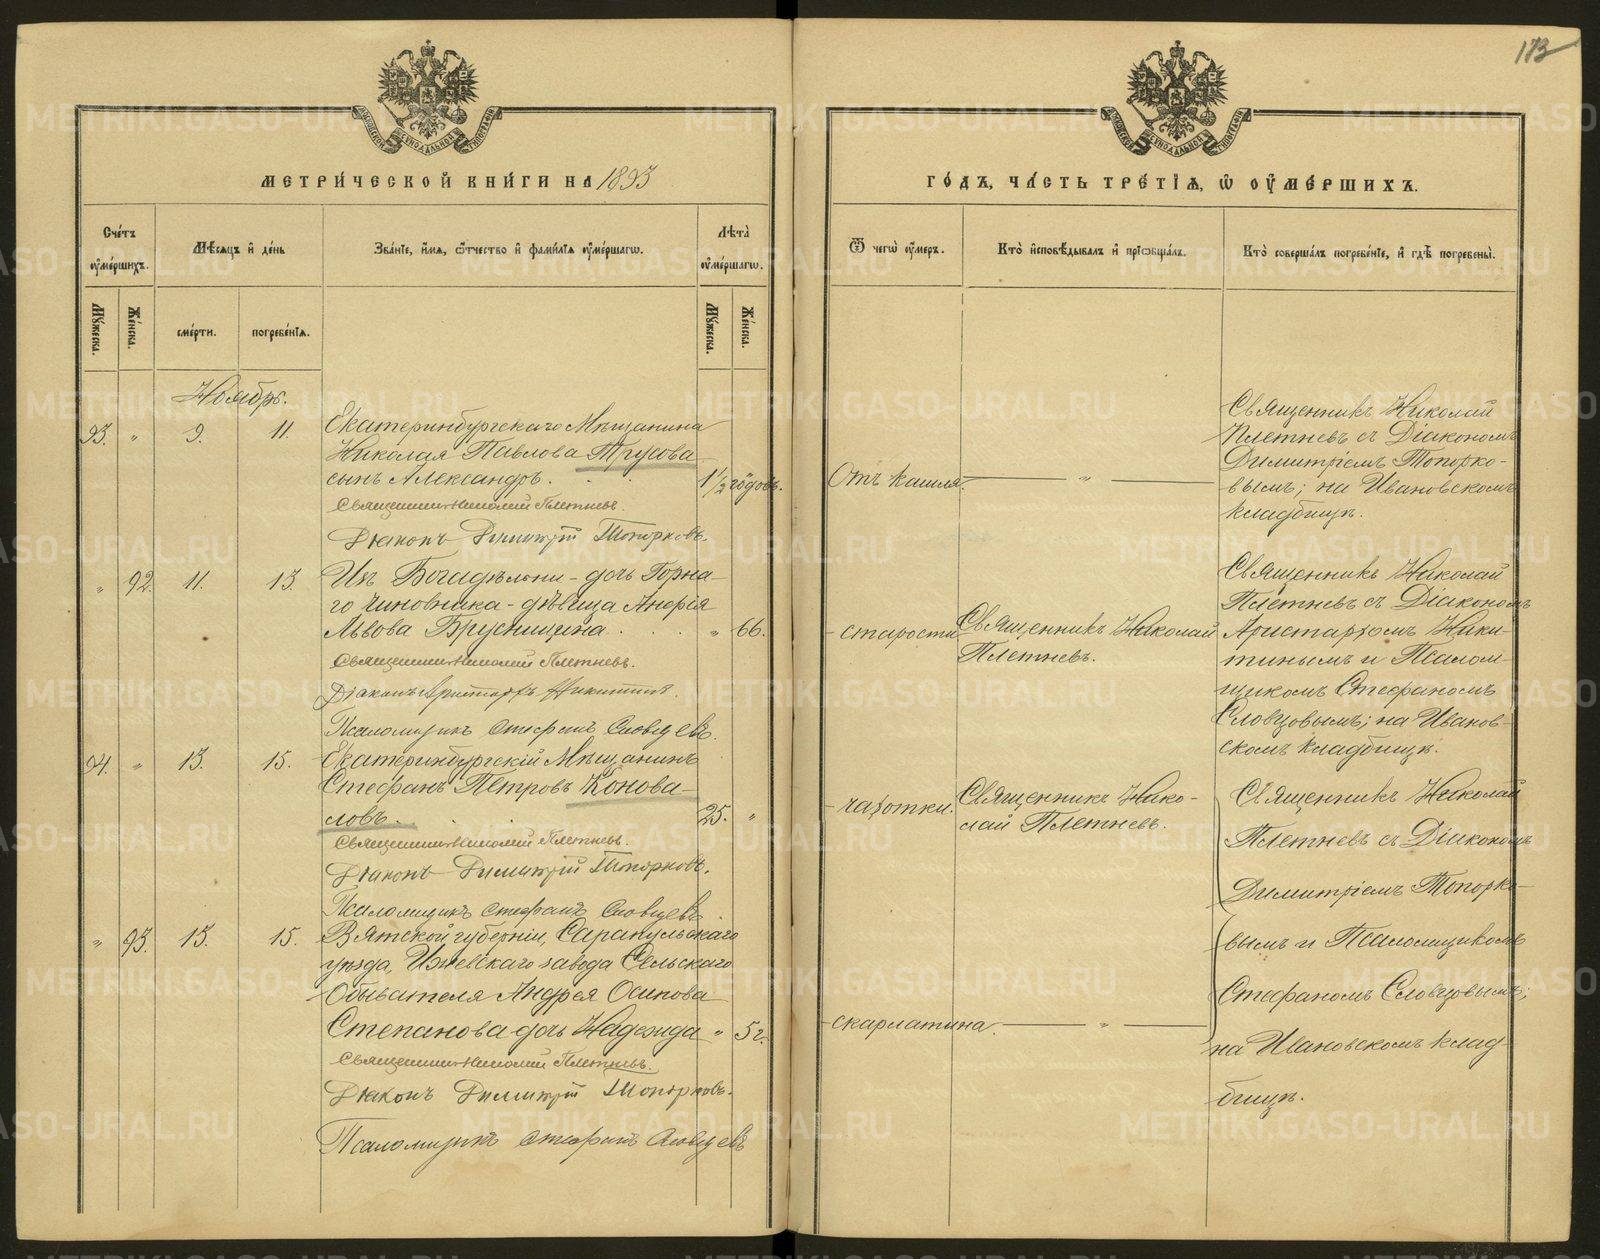 173
МЕТРИ́ЧЕСКОЙ КНИ́ГИ НА 1893
ГО́ДЪ, ЧА́СТЬ ТРЕ́ТІѦ, Ѡ҆ ОУ҆МЕ́РШИХЪ.
Сче́тъ оу҆ме́ршихъ.
Мѣ́сѧцъ и҆ де́нь
Зва́нїе, и҆́мѧ, ѻ҆́тчество и҆ фами́лїѧ оу҆ме́ршагѡ.
Лѣ́та оу҆ме́ршагѡ.
Ѿ чегѡ̀ оу҆́меръ.
Кто̀ и҆сповѣ́дывалъ и҆ прїѡбща́лъ.
Кто̀ соверша́лъ погребе́нїе, и҆ гдѣ̀ погребены̀.
Мꙋ́жеска.
Же́нска.
сме́рти.
погребе́нїѧ.
Мꙋ́жеска.
Же́нска.
Ноябрь.
93. " 9. 11.
Екатеринбургскаго Мѣщанина
Николая Павлова Трусова
сынъ Александръ.
1½ годовъ.
Священникъ Николай Плетневъ.
Діаконъ Димитрій Топорковъ.
Отъ кашля. "
Священникъ Николай
Плетневъ съ Діакономъ
Димитріемъ Топорко-
вымъ; на Ивановскомъ
кладбищѣ.
" 92. 11. 13.
Изъ Богадѣльни - дочь Горна-
го чиновника - дѣвица Анфія
Львова Брусницина " 66.
Священникъ Николай Плетневъ.
Діаконъ Аристархъ Никитинъ.
Псаломщикъ Стефанъ Словцевъ.
старости
Священникъ Николай
Плетневъ.
Священникъ Николай
Плетневъ съ Діакономъ
Аристархомъ Ники-
тинымъ и Псалом-
щикомъ Стефаномъ
Словцовымъ; на Иванов-
скомъ кладбищѣ.
94. " 13. 15.
Екатеринбургскій Мѣщанинъ
Стефанъ Петровъ Конова-
ловъ. 25. "
Священникъ Николай Плетневъ.
Діаконъ Димитрій Топорковъ.
Псаломщикъ Стефанъ Словцевъ.
чахотки.
Священникъ Нико-
лай Плетневъ.
Священникъ Николай
Плетневъ съ Діакономъ
Димитріемъ Топорко-
вымъ и Псаломщикомъ
Стефаномъ Словцовымъ;
на Ивановскомъ клад-
бищѣ.
" 93. 13. 15.
Вятской губерніи, Сарапульскаго
уѣзда, Ижевскаго завода Сельскаго
Обывателя Андрея Осипова
Степанова дочь Надежда " 5 г.
Священникъ Николай Плетневъ.
Діаконъ Димитрій Топорковъ.
Псаломщикъ Стефанъ Словцевъ
скарлатина. "